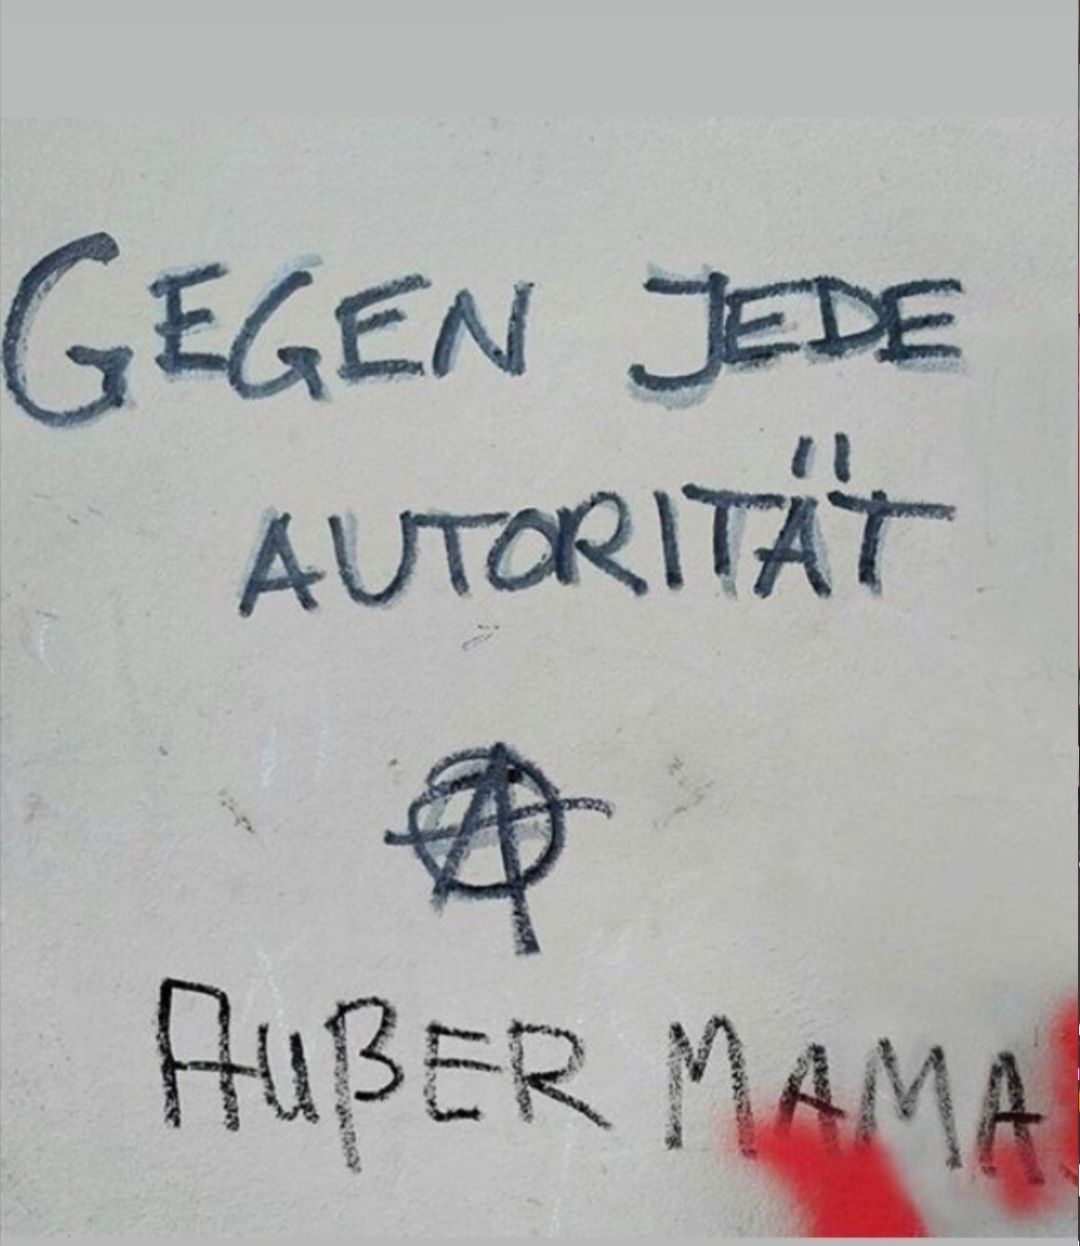 GEGEN JEDE
AUTORITÄT
AUßER MAMA